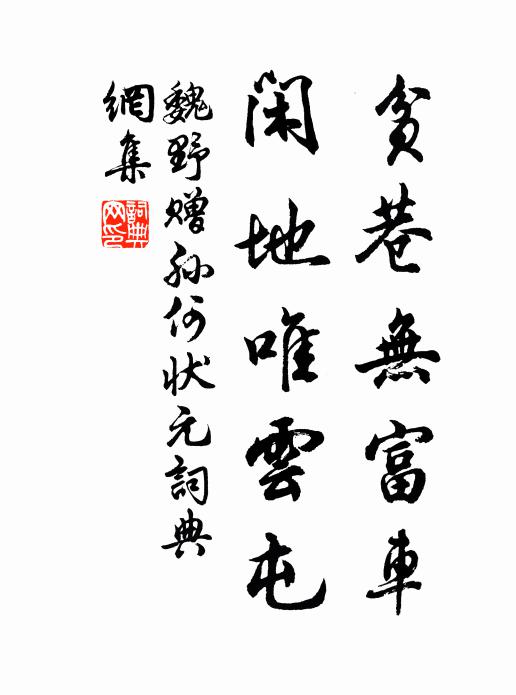 貧巷無富車
閑地唯雲屯
魏野贈孫何狀元詞典
網集
詞典網印